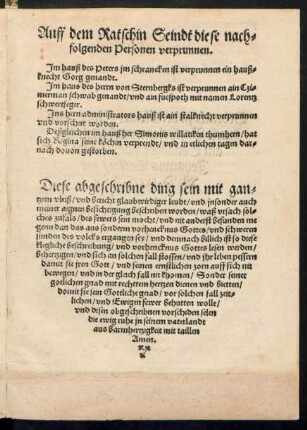 Auff dem Ratschin Seindt diese nach-
folgenden Personen verprunnen.
Jm hauß des Peters jm schrancken ist verprunnen ein hauß-
knecht Gorg genandt.
Jm haus des herrn von Sternbergks ist verprunnen ain Czi-
merman schwab genandt/ vnd ain sucspoth mit namen Lorentz
schwertfeger.
Jns hern administrators hauß ist ain stalknecht verprunnen
vnd verschirt worden.
Desgleichen im hauß her Simonis willatikon thumhern/ hat
sich Regina seine köchin verprendt/ vnd in etlichen tagen dar-
nach douon gestorben.
Diese abgeschribne ding sein mit gan-
tzem vleiß/ vnd bericht glaubwirdiger leudt/ vnd insonder auch
meiner eignen besichtigung beschriben worden/ waß vrsach sol-
ches zufals/ des fewers sein mocht/ vnd nit anderst befunden
genn dan das aus sondern vorhencknus Gottes/ vnd schweren
sunden des volcks ergangen sey/ vnd dennach billich ist so diese
klegliche Beschreibung/ vnd vorhencknus Gottes lesen werden/
behertzigen/ vnd sich an solchen fall stossen/ vnd ihr leben pessern
damit sie jren Gott/ vnd seinen ernstlichen zorn auff sich nit
bewegen/ vnd in der gleich fall nit thomen/ Sonder seiner
gotlichen gnad mit rechtem hertzen dienen vnd bietten/
domit sie sein Gottliche gnad/ vor solchen fall zeit-
lichen/ vnd Ewigen fewer behutten wolle/
vnd disen obgeschribnen vorschiden selen
die ewig ruhe in seinem vaterlandt
aus barmhertzigkeit mit taillen
Amen.